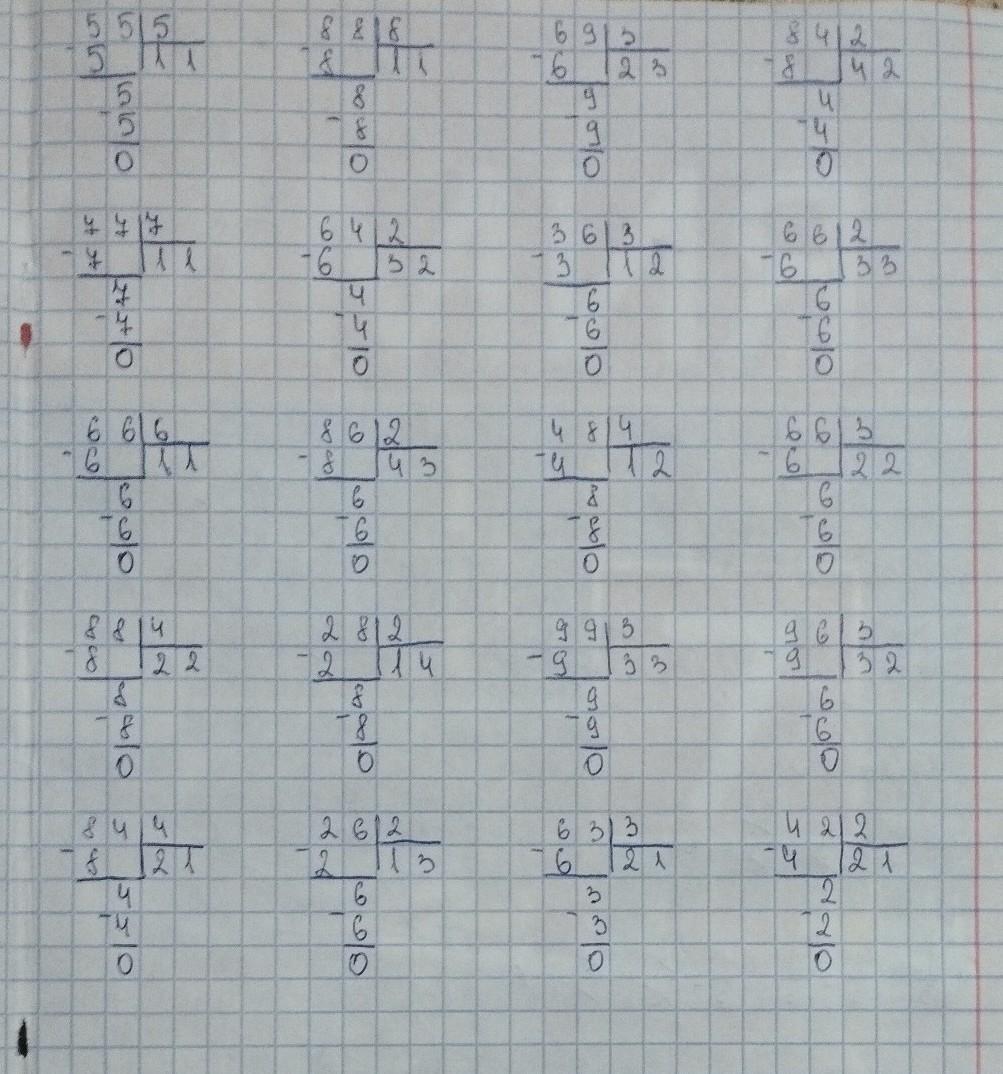 55|5 88|8 69|3 84|2
-5 |11 -8 |11 -6 |23 -8 |42
5 8 9 4
-5 -8 -9 -4
0 0 0 0
77|7 64|2 36|3 66|2
-7 |11 -6 |32 -3 |12 -6 |33
7 4 6 6
-7 -4 -6 -6
0 0 0 0
66|6 86|2 48|4 66|3
-6 |11 -8 |43 -4 |12 -6 |22
6 6 8 6
-6 -6 -8 -6
0 0 0 0
88|4 28|2 99|3 96|3
-8 |22 -2 |14 -9 |33 -9 |32
8 8 9 6
-8 -8 -9 -6
0 0 0 0
84|4 26|2 63|3 42|2
-8 |21 -2 |13 -6 |21 -4 |21
4 6 3 2
-4 -6 -3 -2
0 0 0 0